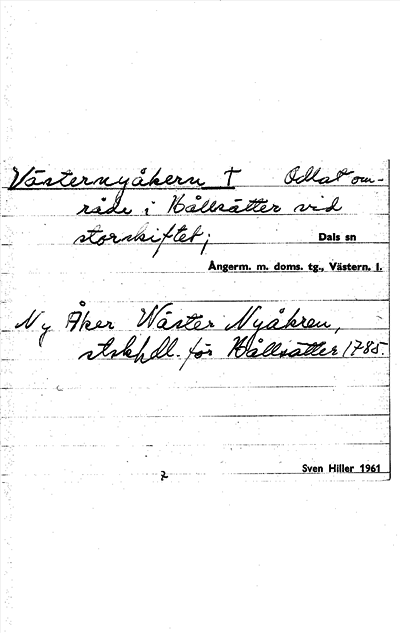 Västernyåkern † Odlat om-
råde i Hållsätter vid
storskiftet;
Dals sn
Ångerm. m. doms. tg., Västern. l.
Ny Åker Wäster Nyåkren,
stskhdl. för Hållsätter 1785.
Sven Hiller 1961